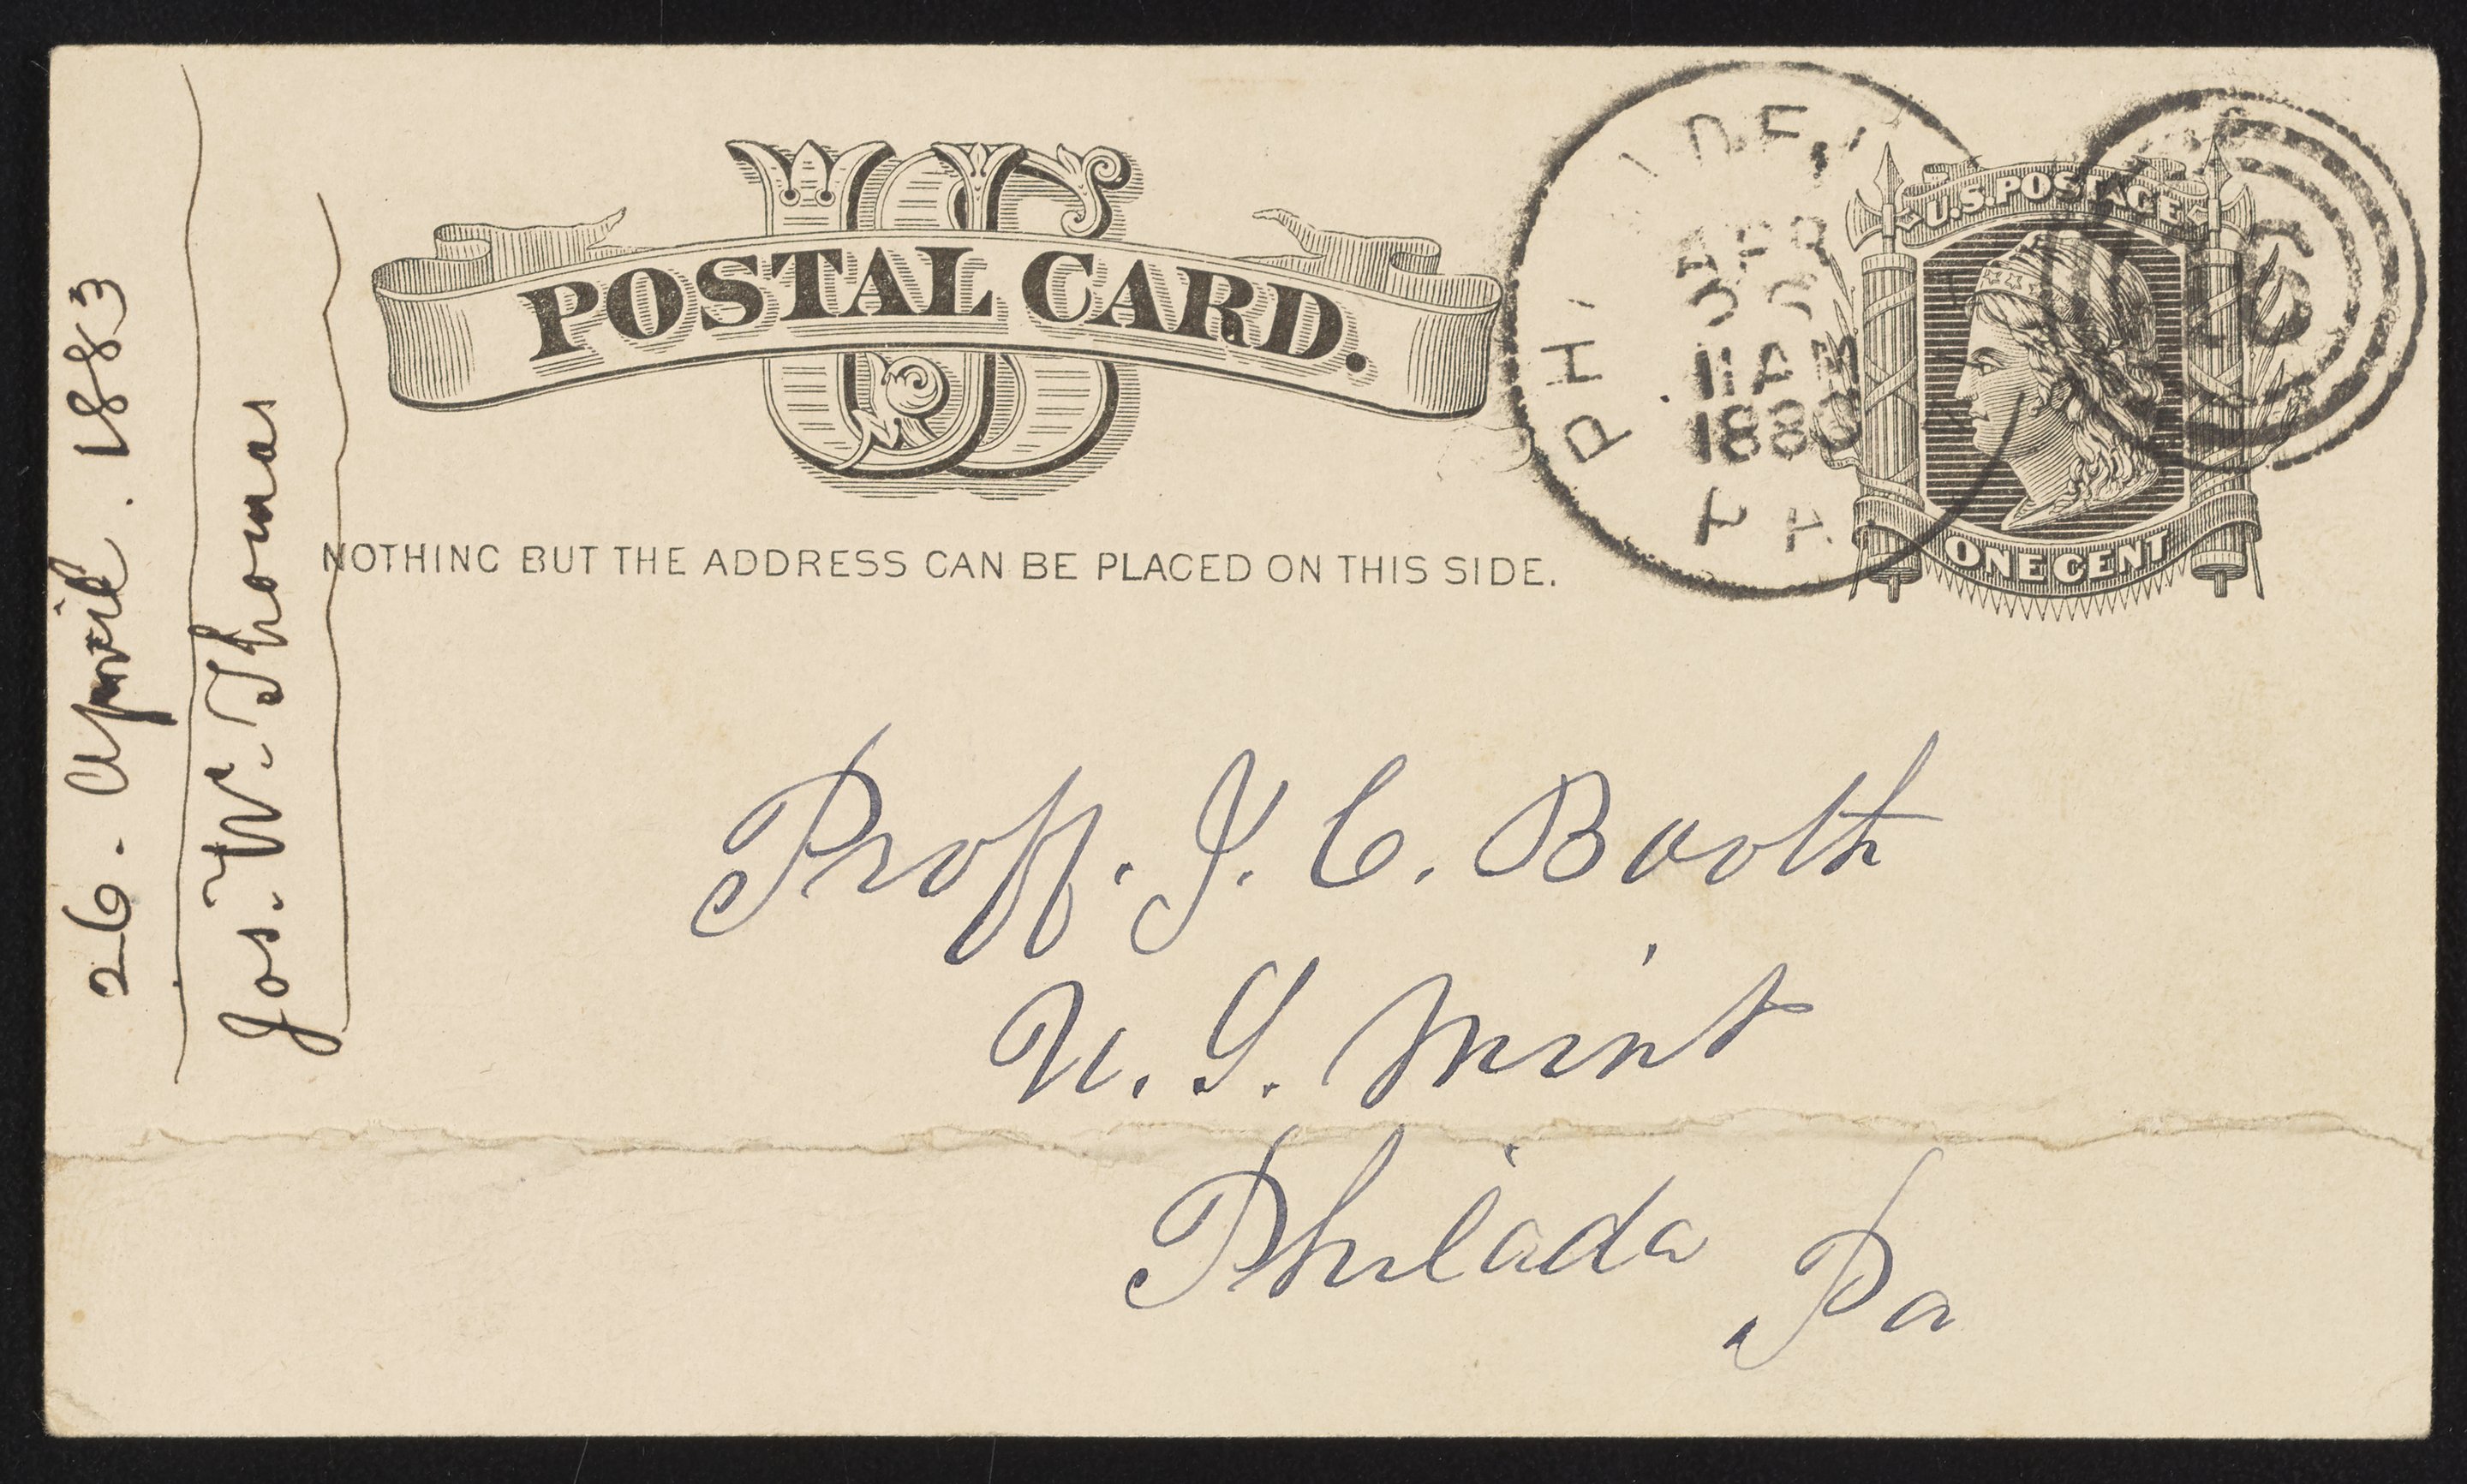 26. April. 1883
Jos. W. Thomas
US
POSTAL CARD.
NOTHING BUT THE ADDRESS CAN BE PLACED ON THIS SIDE.
APR
11 AM
P A
U.S. POSTAGE
ONE CENT
6
Proff. J. C. Booth
U. S. Mint
Philada Pa